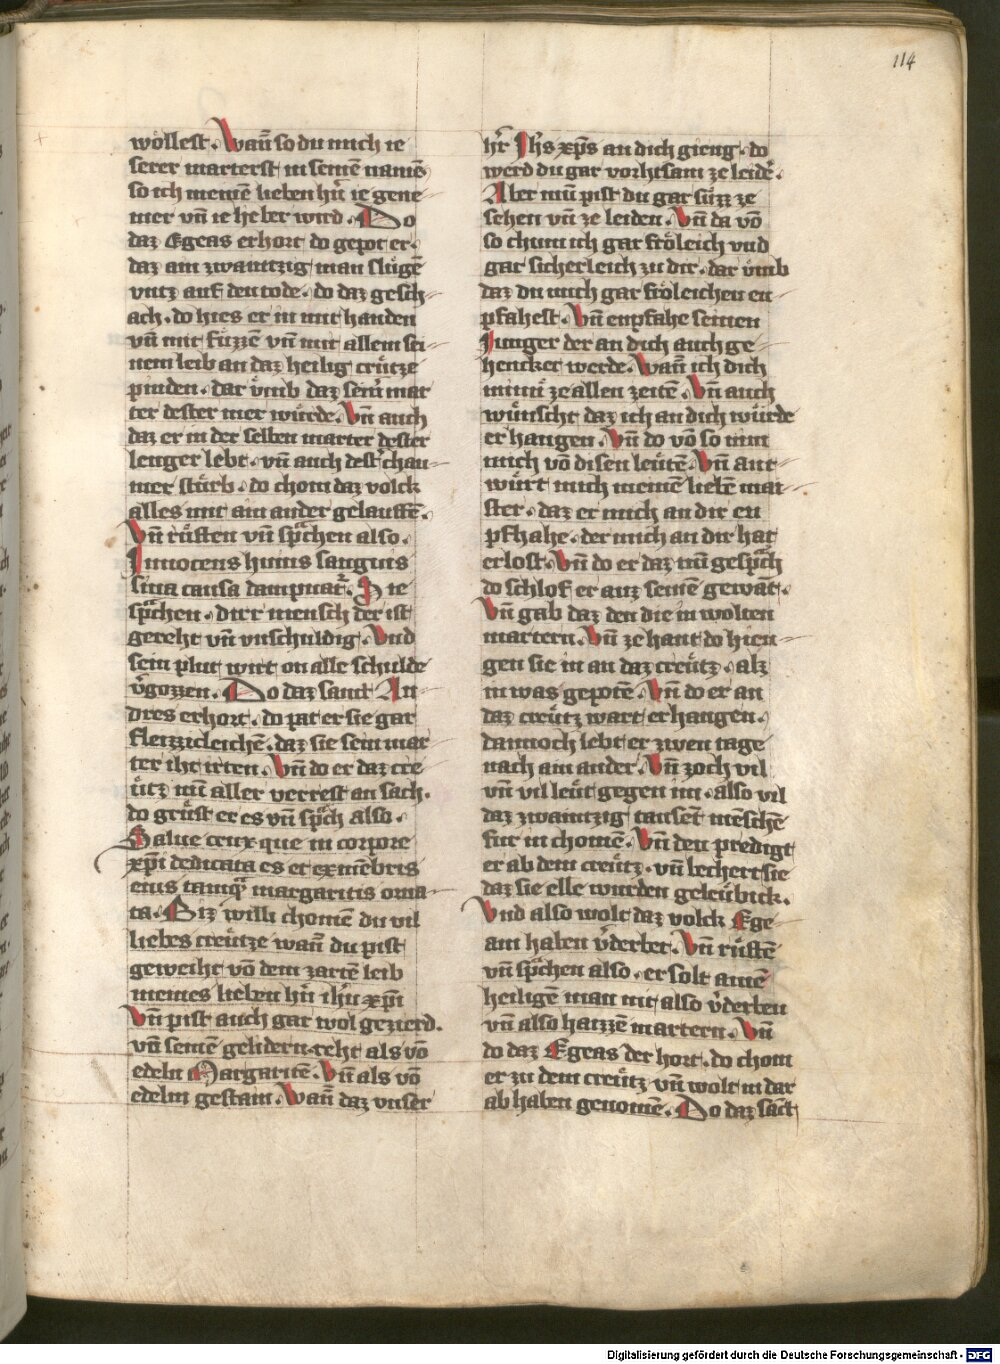 114
wöllest. Wann̄ so du mich ie
serer marterst in seinē namē
so ich meinem lieben hr̄n ie gene
mer vn̄ ie lieber wird. Do
daz Egeas erhort do gepot er.
daz ain zwaintzig man slůgē
vntz auf den tode. do daz gesch
ach. do hies er in mit handen
vn̄ mit fűzzen vn̄ mit allem sei
nem leib an daz heilig crűtze
pinden. dar vmb daz sein̄ mar
ter dester mer wűrde. Vn̄ auch
daz er in der selben marter dester
lenger lebt. vn̄ auch dest̄ chau
mer stűrb. do chom daz volck
alles mit ain ander gelauffē.
Vn̄ rűften vn̄ sprͣchen also.
Innocens huius sanguis
sina causa dampnat᷑. Sie
sprͣchen. dirr mensch der ist
gereht vn̄ vnschuldig. Vnd
sein plut wirt on alle schulde
v᷑gozzen. Do daz sanct An
dres erhort. do pat er sie gar
fleizzicleichē. daz sie sein mar
ter iht irten. Vn̄ do er daz cre
űtz nu aller verrest an sach.
do grűst er es vn̄ sprͣch also.
Salue crux que in corpore
xp̄i dedicata es et ex mēbris
eius tamqͣ margaritis orna
ta. Biz willi chomē du vil
liebes creűtze wann̄ du pist
geweiht vō dem zartē leib
meines lieben hr̄n ih̄u xp̄i
Vn̄ pist auch gar wol gezierd.
von seinē gelidern. reht als vō
edeln Margaritē. Vn̄ als vō
edelm gestain. Wann̄ daz vnser
hr̄ Ih̄s xp̄s an dich gieng. do
werd du gar vorhtsam ze leidē.
Aber nun pist du gar sűzz ze
sehen vn̄ ze leiden. Vn̄ da vō
so chum ich gar fröleich vnd
gar sicherleich zu dir. dar vmb
daz du mich gar fröleichen en
pfahest. Vn̄ enpfahe seinen
Iunger der an dich auch ge
hencket werde. Wann̄ ich dich
minn ze allen zeitē. Vn̄ auch
wűnscht daz ich an dich wűrde
er hangen. Vn̄ do vō so nim
mich vō disen leűtē. Vn̄ ant
wűrt mich meinē liebē mai
ster. daz er mich an dir en
pfhahe. der mich an dir hat
erlost. Vn̄ do er daz nu gesprͣch
do schlof er auz seinē gewāt.
Vn̄ gab daz den die in wolten
martern. Vn̄ ze hant do hien
gen sie in an daz creűtz. alz
in was gepotē. Vn̄ do er an
daz creűtz wart erhangen.
dannoch lebt er zwen tage
nach ain ander. Vn̄ zoch vil
vn̄ vil leűt gegen im. also vil
daz zwaintzig tausēt mēschē
fur in chomē. Vn̄ den predigt
er ab dem creűtz. vn̄ bechert sie
daz sie elle wurden geleűbick.
Vnd also wolt daz volck Ege
am haben v᷑derbet. Vn̄ rűftē
vn̄ sprͣchen also. er solt ainē
heiligē man nit also v᷑derben
vn̄ also haizzē martern. Vn̄
do daz Egeas der hort. do chom
er zu dem creűtz vn̄ wolt in dar
ab haben genomē. Do daz sāct
Digitalisierung gefördert durch die Deutsche Forschungsgemeinschaft - DFG